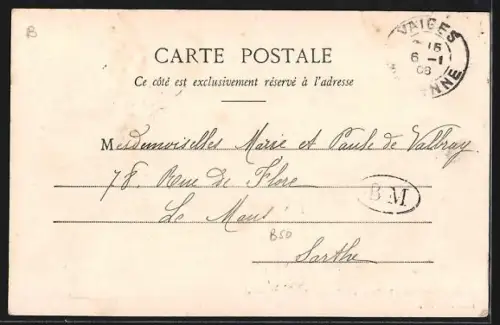 B
VAIGES
15
6 -1
08
MAYENNE
CARTE POSTALE
Ce côté est exclusivement réservé à l'adresse
Mesdemoiselles Marie et Paule de Valbray
78. Rue de Flore
B M
Le Mans
B50
Sarthe